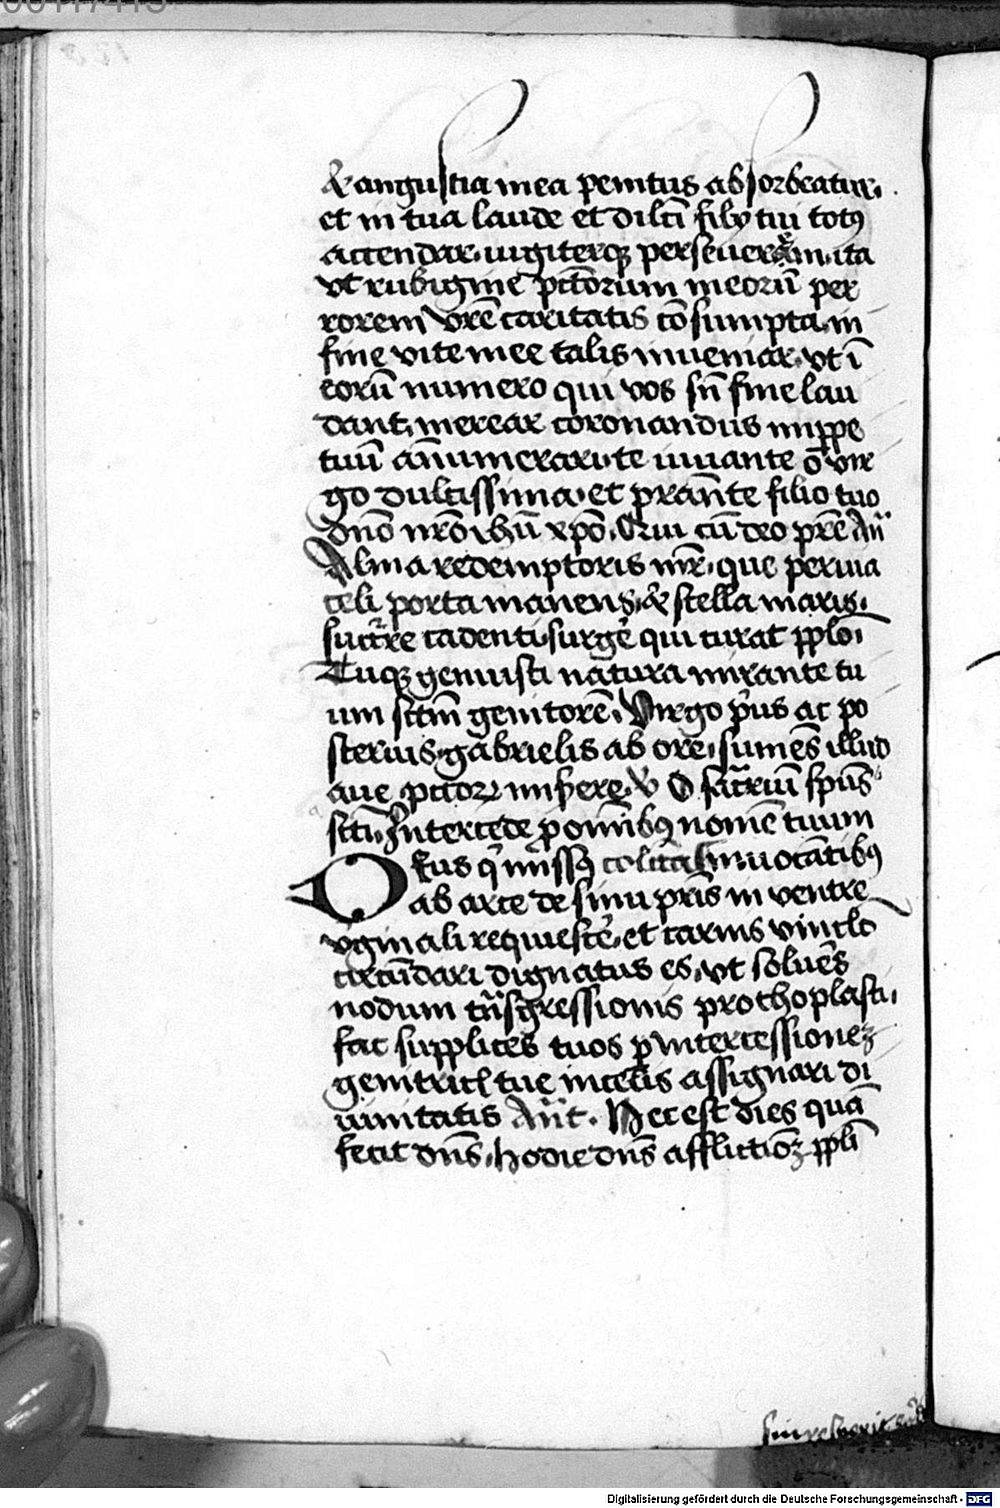 & angustia mea penitus absorbeatur.
et in tua laude et dilcĩ filÿ tui totꝰ
accendar. iugiterqꝫ perseuerem. ita
vt rubigine pctorum meorũ per
rorem vrẽ caritatis cõsumpta. in
fine vite mee talis inueniar. vt ĩ
eorũ numero qui vos sñ fine lau
dant. merear coronandus inꝑpe
tuũ ãnumerari. te iuuante o vir
go dulcissima. et prãnte filio tuo
dño nrõ ihũ xpõ. Qui cũ deo prẽ Añ
Alma redemptoris mr̃. que peruia
celi porta manens. & stella maris.
succ̃re cadenti. surgẽ qui curat pplo.
Tuqꝫ genuisti natura mirante tu
um sctm̃ genitorẽ. Virgo pˀus ac po
sterius. gabrielis ab ore. sumẽs illud
aue pctorꝝ miserere. v O sacr̃iũ spũs
scti. Intercede ꝓ omibꝫ nomẽ tuum
inuocãtibꝫ
Deus qˀ missꝫ
ab arce de sinu pris in ventre
vginali requiescẽ. et carnis vinclo
circũdari dignatus es. vt soluẽs
nodum trñsgressionis prothoplasti.
fac supplices tuos ꝑ intercessionez
genitricis tue in celis assignari di
uinitatis Añt. Hec est dies quã
fecit dñs. hodie dñs afflictiõz ppli
Digitalisierung gefördert durch die Deutsche Forschungsgemeinschaft - DFG